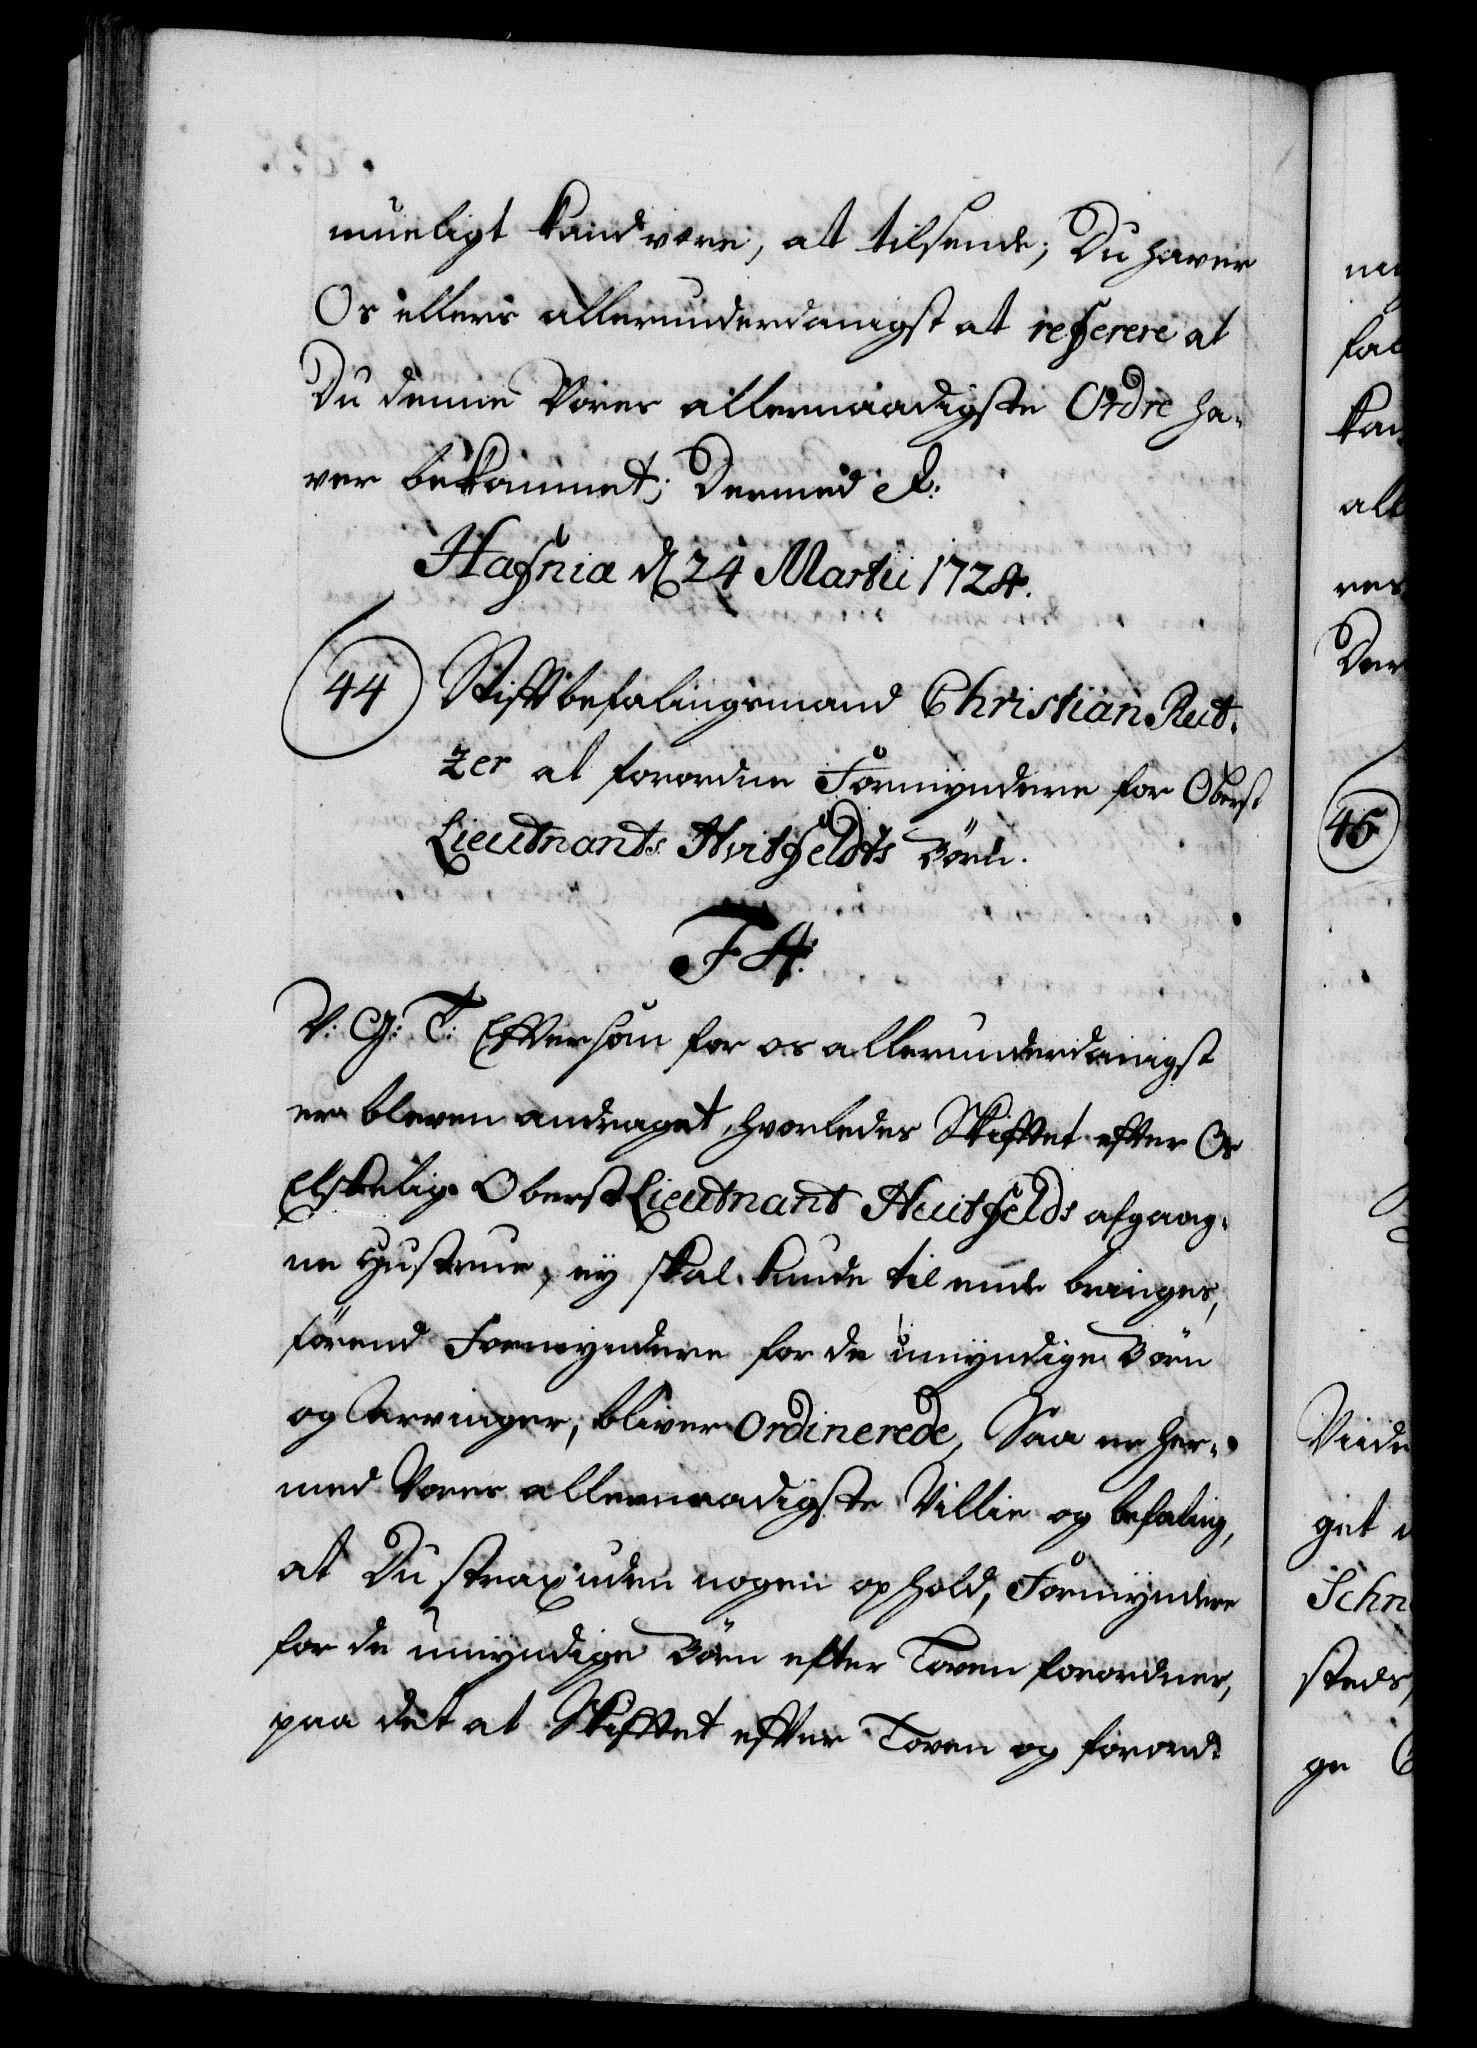 mueligt kand være, at tilsende; Du haver
Os ellers allerunderdanigst at referere at
Du denne Vores allernaadigste Ordre ha-
ver bekommet; Dermed &:
Hafniæ d 24 Martii 1724.
44 Stiftbefalingsmand Christian Reut-
zer at forordne Formyndere for Oberst
Lieutnants Hvitfeldts Børn.
F 4.
V: G: T: Eftersom for os allerunderdanigst
er bleven andraget, hvorledes Skiftet efter Os
Elskelig Oberst Lieutnant Huitfelds afgang-
ne Hustrue, ey skal kunde til ende bringes,
førend Formyndere for de umyndige Børn
og Arvinger, bliver Ordinerede, Saa er her-
med Vores allernaadigste Villie og befaling,
at Du strax uden nogen ophold, Formyndere
for de umyndige Børn efter Loven forordner,
paa det at Skiftet efter Loven og forord-
45